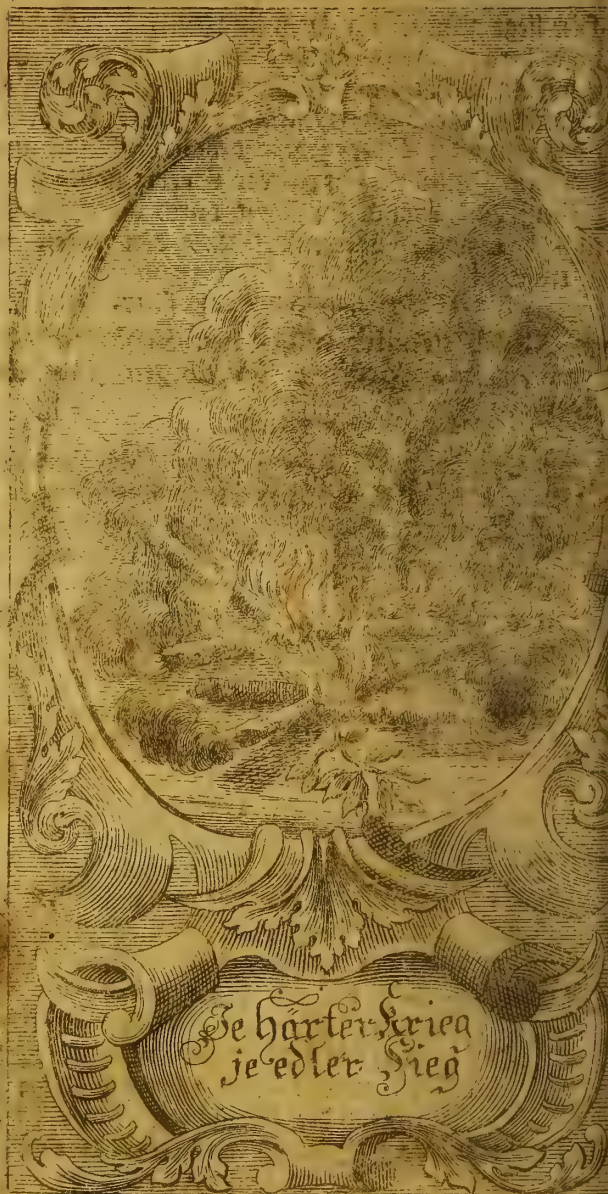 Je härter Krieg
je edler Sieg